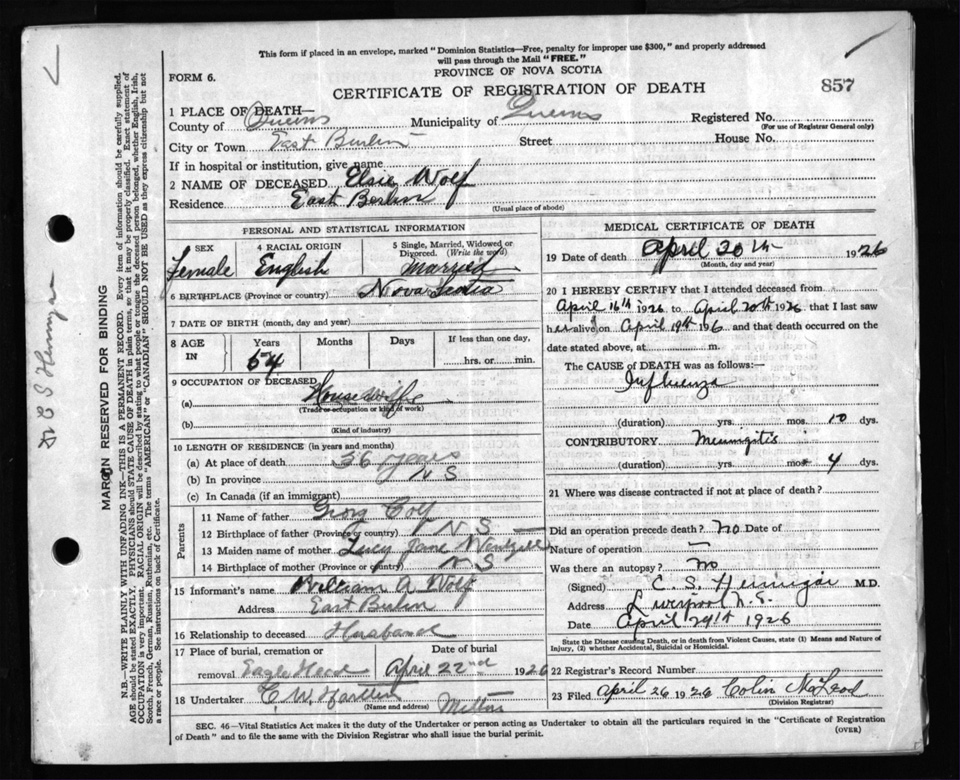 This form if placed in an envelope, marked "Dominion Statistics—Free, penalty for improper use $300," and properly addressed
will pass through the Mail "FREE."
PROVINCE OF NOVA SCOTIA
FORM 6.
CERTIFICATE OF REGISTRATION OF DEATH
857
1 PLACE OF DEATH—
County of Queens Municipality of Queens Registered No.
(For use of Registrar General only)
City or Town East Berlin Street House No.
If in hospital or institution, give name
2 NAME OF DECEASED Elsie Wolf
Residence East Berlin
(Usual place of abode)
PERSONAL AND STATISTICAL INFORMATION
3 SEX 4 RACIAL ORIGIN 5 Single, Married, Widowed or Divorced. (Write the word)
Female English Married
6 BIRTHPLACE (Province or country) Nova Scotia
7 DATE OF BIRTH (month, day and year)
8 AGE IN Years Months Days If less than one day,
54 hrs. or min.
9 OCCUPATION OF DECEASED
(a) Housewife
(Trade occupation or kind of work)
(b)
(Kind of industry)
10 LENGTH OF RESIDENCE (in years and months)
(a) At place of death 36 years
(b) In province N S
(c) In Canada (if an immigrant)
Parents
11 Name of father Georg
12 Birthplace of father (Province or country) N S
13 Maiden name of mother Lucy Jane
14 Birthplace of mother (Province or country) N S
15 Informant's name William A Wolf
Address East Berlin
16 Relationship to deceased Husband
17 Place of burial, cremation or Date of burial
removal Eagle Head April 22nd 1926
18 Undertaker C. W.
(Name and address)
MEDICAL CERTIFICATE OF DEATH
19 Date of death April 20th 1926
(Month, day and year)
20 I HEREBY CERTIFY that I attended deceased from
April 16th 1926 to April 20th 1926 that I last saw
her alive on April 19th 1926 and that death occurred on
date stated above, at m.
The CAUSE OF DEATH was as follows:—
Influenza
(duration) yrs. mos. 10 dys.
CONTRIBUTORY Meningitis
(duration) yrs. mos. 4 dys.
21 Where was disease contracted if not at place of death?
Did an operation precede death? No Date of
Nature of operation —
Was there an autopsy? No
(Signed) C. S. Hennigar M.D.
Address Liverpool N.S.
Date April 1926
State the Disease causing Death, or in death from Violent Causes, state (1) Means and Nature of
Injury, (2) whether Accidental, Suicidal or Homicidal.
22 Registrar's Record Number
23 Filed April 26 1926 Colin McLeod
(Division Registrar)
SEC. 46—Vital Statistics Act makes it the duty of the Undertaker or person acting as Undertaker to obtain all the particulars required in the "Certificate of Registration
of Death" and to file the same with the Division Registrar who shall issue the burial permit.
(OVER)
MARGIN RESERVED FOR BINDING
N.B.—WRITE PLAINLY WITH UNFADING INK—THIS IS A PERMANENT RECORD. Every item of information should be carefully supplied.
AGE should be stated EXACTLY. PHYSICIANS should STATE CAUSE OF DEATH in plain terms, so that it may be properly classified. Exact statement of
OCCUPATION is very important. RACIAL ORIGIN will be described by stating to what people or tongue the deceased person belonged, whether English, Irish,
Scotch, French, German, Russian, Ruthenian, etc. The terms "AMERICAN" or "CANADIAN" SHOULD NOT BE USED as they express citizenship but not
a race or people. See instructions on back of Certificate.